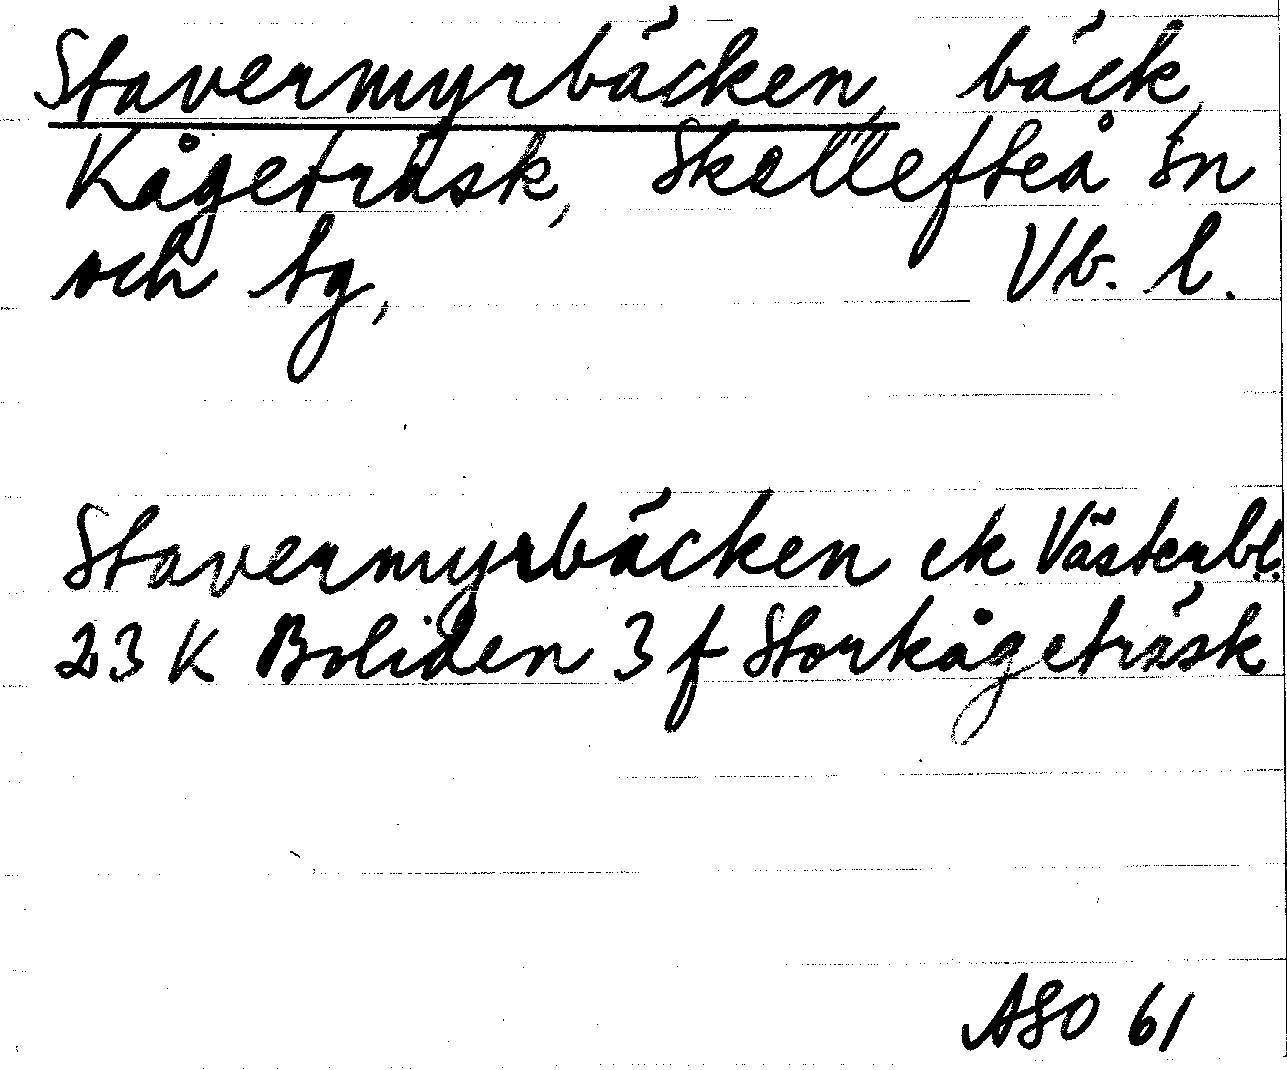 Stavermyrbäcken, bäck,
Kågeträsk, Skellefteå sn
och tg, Vb. l.
Stavermyrbäcken ek Västerb.l.
23 K Boliden 3 f Storkågeträsk
ASO 61